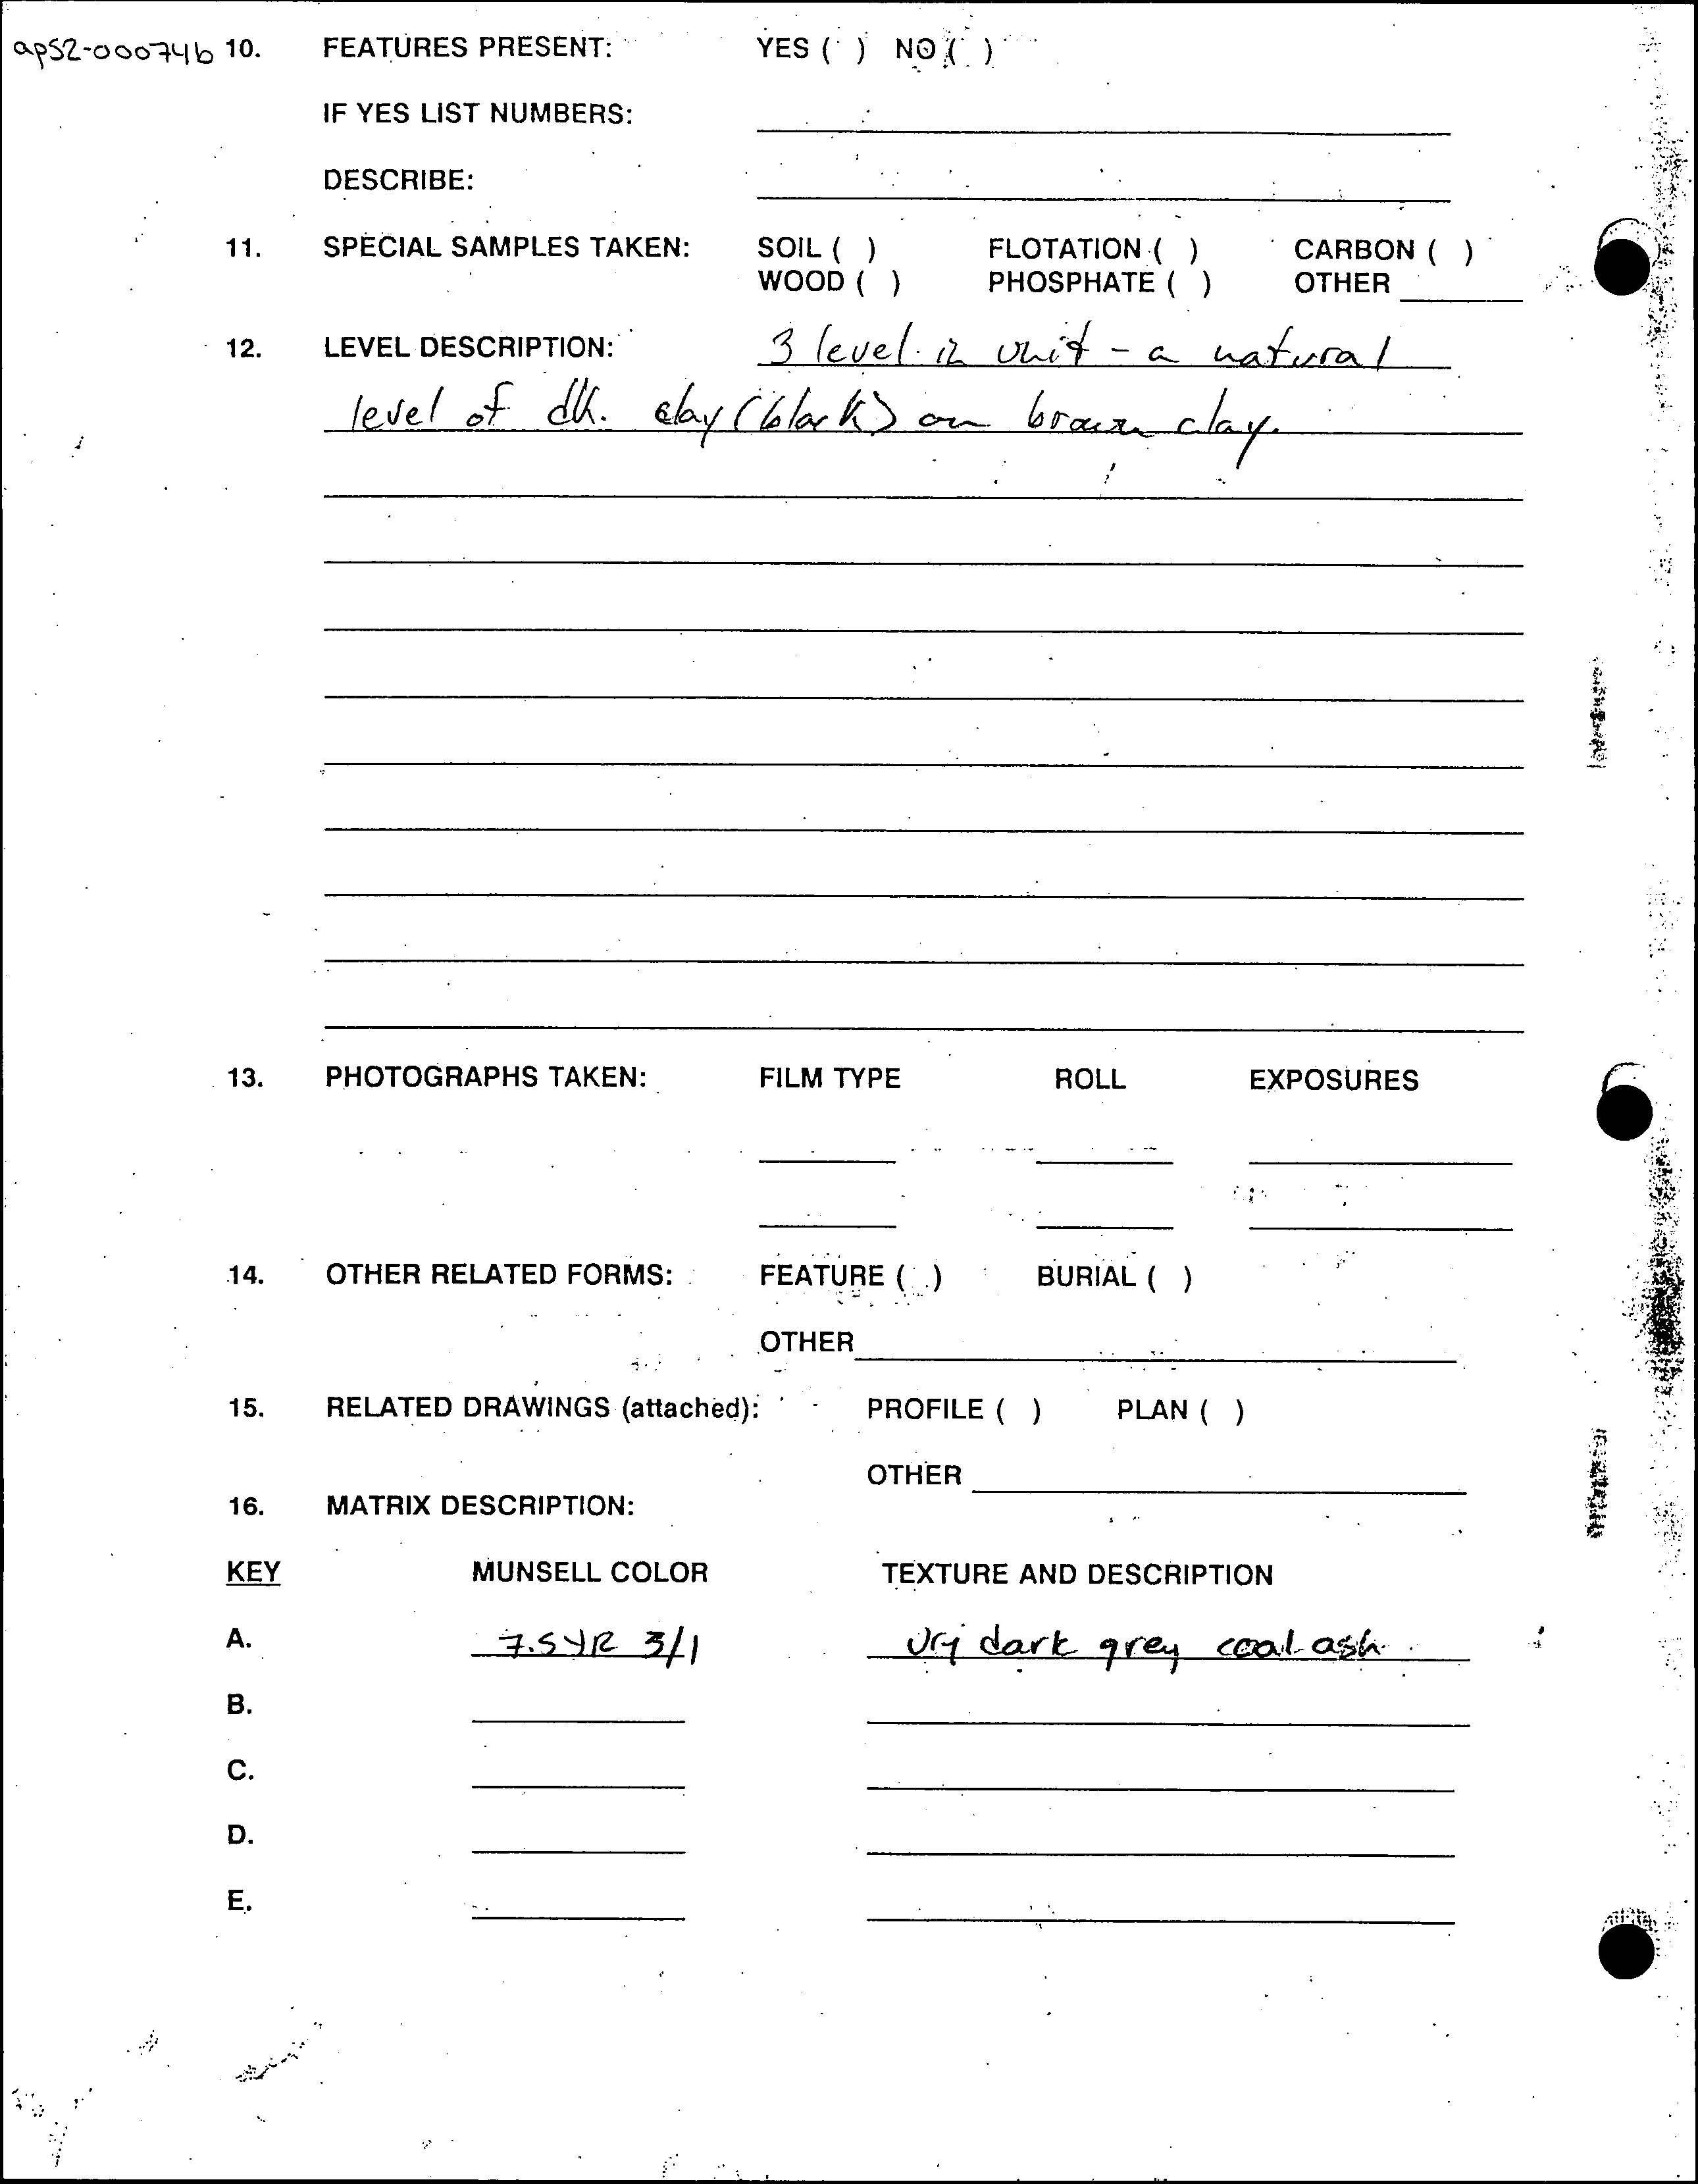 aps2-000746 10. FEATURES PRESENT: YES ( ) NO ( )
IF YES LIST NUMBERS:
DESCRIBE:
11. SPECIAL SAMPLES TAKEN: SOIL ( ) FLOTATION ( ) CARBON ( )
WOOD ( ) PHOSPHATE ( ) OTHER
12. LEVEL DESCRIPTION: 3 level in unit - a natural
level of dk. clay (black) on brown clay.
13. PHOTOGRAPHS TAKEN: FILM TYPE ROLL EXPOSURES
14. OTHER RELATED FORMS: FEATURE ( ) BURIAL ( )
OTHER
15. RELATED DRAWINGS (attached): PROFILE ( ) PLAN ( )
OTHER
16. MATRIX DESCRIPTION:
KEY MUNSELL COLOR TEXTURE AND DESCRIPTION
A. 7.5YR 3/1 Vry dark grey coal ash
B.
C.
D.
E.